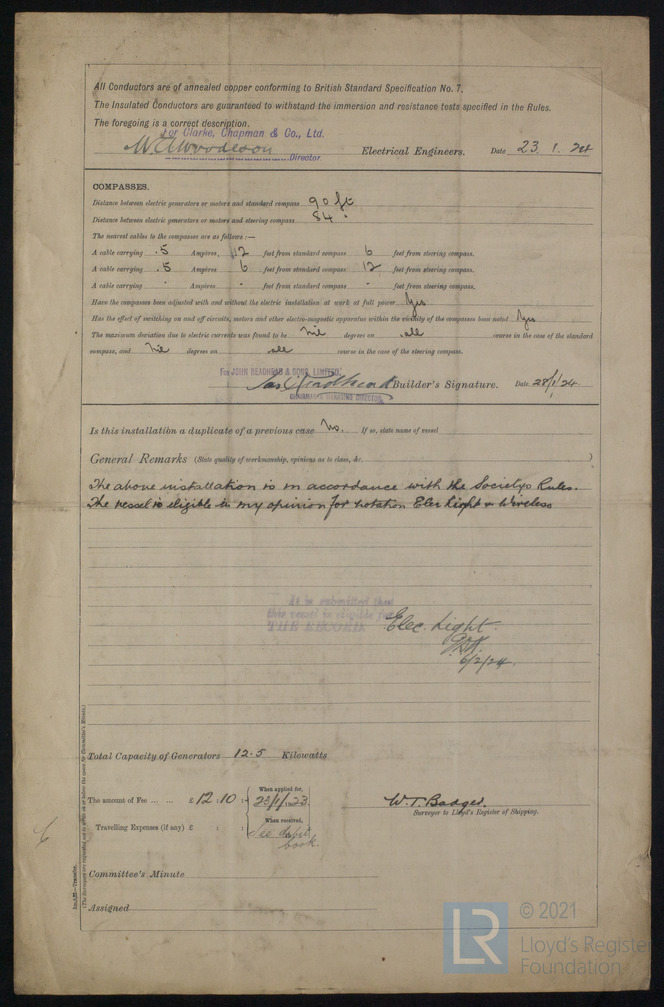 All Conductors are of annealed copper conforming to British Standard Specification No. 7.
The Insulated Conductors are guaranteed to withstand the immersion and resistance tests specified in the Rules.
The foregoing is a correct description.
For Clarke, Chapman & Co., Ltd.
Director. Electrical Engineers. Date 23. 1. 24
COMPASSES.
Distance between electric generators or motors and standard compass 90 ft
Distance between electric generators or motors and steering compass 84 "
The nearest cables to the compasses are as follows:—
A cable carrying .5 Ampères, 12 feet from standard compass 6 feet from steering compass.
A cable carrying .5 Ampères 6 feet from standard compass 12 feet from steering compass.
A cable carrying - Ampères - feet from standard compass - feet from steering compass.
Have the compasses been adjusted with and without the electric installation at work at full power Yes
Has the effect of switching on and off circuits, motors and other electro-magnetic apparatus within the vicinity of the compasses been noted Yes
The maximum deviation due to electric currents was found to be Nil degrees on all course in the case of the standard
compass, and Nil degrees on all course in the case of the steering compass.
For JOHN READHEAD & SONS, LIMITED.
Jas Readhead Builder's Signature. Date 28/1/24.
CHAIRMAN & MANAGING DIRECTOR
Is this installation a duplicate of a previous case No. If so, state name of vessel
General Remarks (State quality of workmanship, opinions as to class, &c. )
The above installation is in accordance with the Society's Rules.
The vessel is eligible in my opinion for notation Elec Light & Wireless
It is submitted that
this vessel is eligible for
THE RECORD. Elec. Light.
6/2/24.
Total Capacity of Generators 12.5 Kilowatts
The amount of Fee ... ... £ 12 : 10 : When applied for, 23/1/1923
Travelling Expenses (if any) £ : : When received, See debit book.
W. T. Badger.
Surveyor to Lloyd's Register of Shipping.
Committee's Minute
Assigned
© 2021
LR Lloyd's Register
Foundation